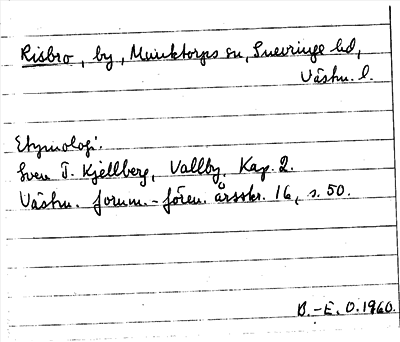 Risbro, by, Munktorps sn, Snevringe hd,
Västm. l.
Etymologi.
Sven T. Kjellberg, Vallby. Kap. 2.
Västm. fornm.-fören. årsskr. 16, s. 50.
B.-E. O. 1960.